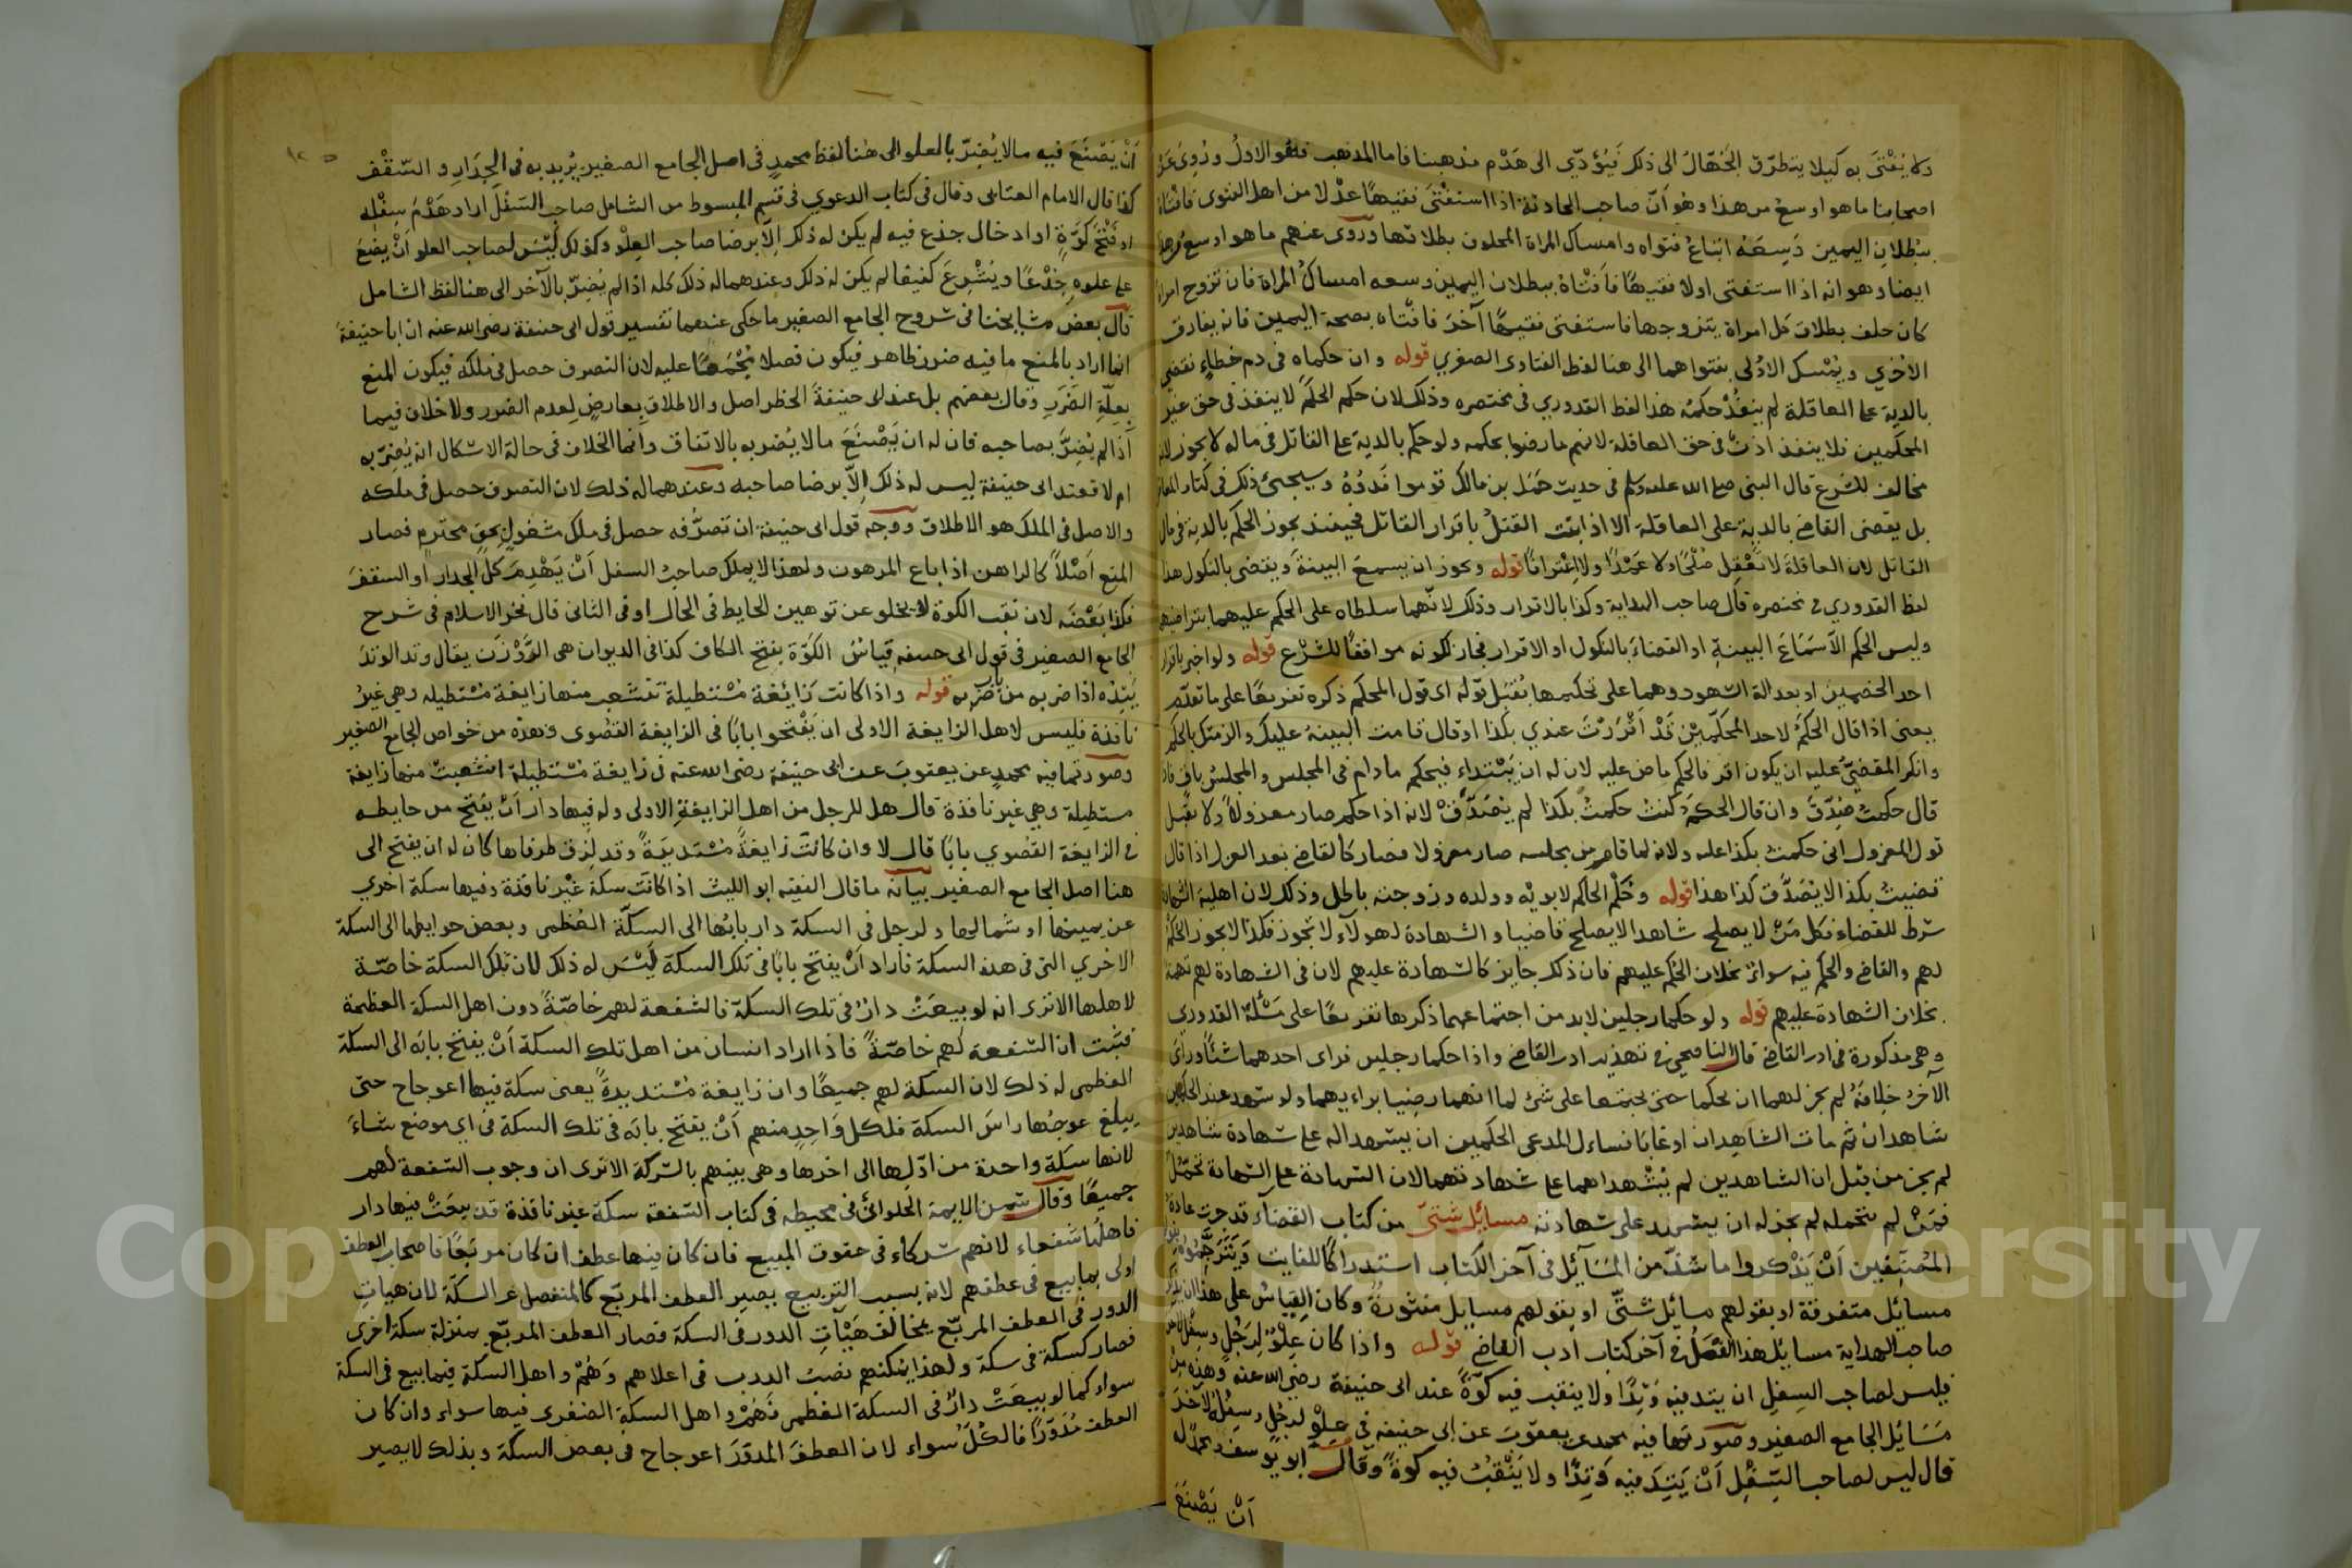 ولا يُفْتَى به كيلا يتطرّق الجُهّالُ الى ذلك فيُؤدّي الى هَدْم مذهبنا فاما المذهب فهو الاولُ ورُوِيَ عَنْ
اصحابنا ما هو اوسع من هذا وهو اَنّ صاحب الحادثة اذا استفْتَى فقيهًا عدْلا من اهل الفتوى فافتاهُ
ببُطلانِ اليمين وَسِعَهُ اتباعُ فتواه وامساك المراة المحلوف بطلاقها وروى عنهم ما هو اوسع من هذا
ايضا وهو انه اذا استفتى اولا فقيهًا فاَفْتاهُ ببطلان اليمين وسعه امساكُ المراة فان تزوج امراة
كان حلف بطلاق كل امراة يتزوجها فاستفتى فقيهًا آخَرَ فافتاه بصحة اليمين فانه يفارق
الاُخْرَي ويُمْسك الاُوْلى بفتواهما الى هنا لفظ الفتاوى الصغري قوله وان حكماه في دم خطاءٍ فقضى
بالدية على العاقلة لم ينفُذْ حكمُه هذا لفظ القدوري في مختصره وذلك لان حكم الحَكَم لا ينفذ في حق غير
المحكمين فلا ينفذ اذنْ في حق العاقلة لانهم ما رضوا بحكمه ولو حكم بالدية على القاتل في ماله لا يجوز لانه
مخالف للشرع قال النبى صلى الله عليه وسلم في حديث حَمَل بن مالك قوموا فَدُوْهُ وسيجئ ذلك في كتاب المعاقل
بل يقضى القاضي بالدية على العاقلة الا اذا ثبت القتلُ باقرار القاتل فحينئذ يجوز الحكم بالدية في مال
القاتل لان العاقلةَ لا تَعْقِل صُلْحًا ولا عَمْدًا ولا اِعْتِرافًا قوله ويجوز ان يسمعَ البينةَ ويقضى بالنكول هذا
لفظ القدوري في مختصره قال صاحب الهداية وكذا بالاقرار وذلك لانّهما سلطاه على الحكم عليهما بتراضيهما
وليس الحكم الاّ سَمَاعَ البينةِ او القضاءَ بالنكول او الاقرار فجاز لكونه موافقًا للشَّرْع قوله ولو اخبر باقرار
احد الخصمين او بعدالة الشهود وهما على تحكيمها يُقْبَل قوله اى قول المحكم ذكره تفريعًا على ما تقدّم
يعنى اذا قال الحَكَمُ لاحد المحكّمَيْن قَدْ اَقْرَرْتَ عندي بكذا او قال قامت البينة عليك والزمتك بالحكم
وانكر المقضيّ عليه ان يكون اقر فالحكم ماض عليه لان له ان يَبْتداءَ فيحكم مادام في المجلس والمجلسُ باق فاذا
قال حكمت صُدِّقَ وان قال الحَكمُ كنت حكمتُ بكذا لم يُصَدَّقْ لانه اذا حكم صار معزولاً ولا يقبل
قول المعزول انى حكمت بكذا عليه ولانه لما قام من مجلسه صار معزولا فصار كالقاضي بعد العزل اذا قال
قضيتُ بكذا لا يُصَدَّق كذا هذا قوله وحُكْم الحاكم لابويْه وولده وزوجته باطل وذلك لان اهلية الشهادة
شرط للقضاء فكل مَنْ لا يصلح شاهدا لا يصلح قاضيا والشهادة لهولآء لا تجوز فكذا لا يجوز الحُكمُ
لهم والقاضي والحكم فيه سوآء بخلاف الحُكم عليهم فان ذلك جايز كالشهادة عليهم لان في الشهادة لهم تهمة
بخلاف الشهادة عليهم قوله ولو حكما رجلين لا بد من اجتماعهما ذكرها تفريعًا على مَسْألة القدورى
وهى مذكورة في ادب القاضي قال الناصحي في تهذيب ادب القاضي واذا حكما رجلين فراى احدهما شيئًا وراَى
الآخرُ خِلافَهُ لم يجز لهما ان يحكما حتى يجتمعا على شئ لما انهما رضيا برايهما ولو شهد عند الحكمين
شاهدان ثم مات الشاهدان او غابا فساءل المدعى الحكمين ان يشهدا له على شهادة شاهديْن
لم يجز من قِبَل ان الشاهدين لم يُشْهداهما على شهادتهما لان الشهادة على الشهادة تحمّلٌ
فمَنْ لم يتحمله لم يجز له ان يشهد على شهادته مسائل شتىّ من كتاب القضاء قد جرت عادة
المُصنّفين اَنْ يَذْكروا ما شذّ من المسَآئل في آخر الكتاب استدراكًا للفايت ويُتَرْجِمُوْه بقولهم
مسايل متفرقة او بقولهم مسائل شتّى او بقولهم مسايل منثورةٌ وكان القِياسُ على هذا ان يذكر
صاحب الهداية مسايل هذا الفصل في آخر كتاب ادب القاضي قوله واذا كان عِلْوٌ لرَجُلٍ وسِفْل لآخر
فليس لصاحب السِفل ان يتد فيه وَتِدًا ولا ينقب فيه كوّةً عند ابى حنيفة رضى الله عنه وهذه من
مَسَائل الجامع الصغير وصورتها فيه محمد عن يعقوبَ عن ابى حنيفه في علوْ لرجُل وسفْلُه لآخَرَ
قال ليس لصاحب السِّفْل اَنْ يَتِدَ فيه وَتِدًا ولا يَنْقُبُ فيه كُوةً وقال ابو يوسف ومحمد له
اَنْ يَصْنَعَ
اَنْ يَصْنَعَ فيه ما لا يُضِرّ بالعلو الى هنا لفظ محمدٍ في اصل الجامع الصغير يُريد به في الجِدَارِ و السَّقْف
كذا قال الامام العتابى وقال في كتاب الدعوي في قسم المبسوط من الشامل صاحبُ السّفْل اراد هَدْمَ سِفْله
او فَتْحَ كوَّةٍ او ادخال جذع فيه لم يكن له ذلك اِلاّ برضا صاحب العلْو وكذلك لَيْسَ لصاحب العلو اَنْ يضع
على علوه جِذْعًا ويُشْرِعَ كنيفا لم يكن له ذلك وعندهما له ذلك كله اذا لم يُضرّ بالآخر الى هنا لفظ الشامل
قال بعض مشايخنا في شروح الجامع الصغير ما حكى عندهما تفسير قول ابى حنيفة رضى الله عنه ان ابا حنيفة
انما اراد بالمنع ما فيه ضرر ظاهر فيكون فصلا مُجْمَعًا عليه لان التصرف حصل في ملكه فيكون المنع
بعلّةِ الضَرَر وقال بعضهم بل عند ابى حنيفةَ الحظر اصل والاطلاق بعارضٍ لعدم الضرر ولا خلاف فيما
اذا لم يُضرَّ بصاحبه فان له ان يَصْنَعَ ما لا يُضر به بالاتفاق وانما الخلاف في حالة الاشكال انه يُضِرّ به
ام لا فعند ابى حنيفة ليس له ذلك اِلاّ برضا صاحبه وعندهما له ذلك لان التصرف حصل في ملكه
والاصل في الملك هو الاطلاق ووجه قول ابى حنيفة ان تصرُّفه حصل في ملك مشغول بحق محترم فصار
المنع اَصْلاً كالراهن اذا باع المرهون ولهذا لا يملك صاحبُ السفل اَنْ يَهْدِمَ كلّ الجدار او السقفَ
فكذا بَعْضَه لان نقب الكوة لا يخلو عن توهين الحايط في الحال او في الثانى قال فخر الاسلام في شرح
الجامع الصغير في قول ابى حنيفه قِياسٌ الكَوّة بفتح الكاف كذا في الديوان هى الرَّوْزَن يقال وتد الوتدَ
يَتِدُه اذا ضربه من باب ضرب قوله واذا كانت زَائغة مُسْتطيلة تنشعب منها زايغة مُسْتطيله وهي غيرُ
نافذة فليس لاهل الزايغة الاولى ان يَفْتحوا بابًا في الزايغة القصْوى وهذه من خواص الجامع الصغير
وصورتها فيه محمدٍ عن يعقوبَ عن ابى حنيفة رضى الله عنه في زايغة مُسْتطيلة انشعبتْ منها زايغة
مستطيلة وهي غير نافذة قال هل للرجل من اهل الزايغةِ الاولى وله فيها دار اَنْ يفتح من حايطه
في الزايغة القصْوي بابًا قال لا وان كانَتْ زايغةً مُسْتديرَةً وقد لزق طرفاها كان له ان يفتح الى
هنا اصل الجامع الصغير بيانه ما قال الفقيه ابو الليث اذا كانت سكة غَيْر نافذة وفيها سكة اخري
عن يمينها او شمالها ولرجل في السكة دار بابُها الى السكّة العُظمى وبعض حوايطها الى السكة
الاخري التى في هذه السكة فاراد اَنْ يفتح بابًا في تلك السكة لَيْسَ له ذلك لان تلك السكة خاصّة
لاهلها الا ترى انه لو بيعَتْ دارٌ في تلك السكة فالشفعة لهم خاصّةً دون اهل السكة العظيمة
فثبت ان الشفعة لهم خاصّةً فاذا اراد انسان من اهل تلك السكة اَنْ يفتح بابَه الى السكة
العظمى له ذلك لان السكة لهم جميعًا وان زايغة مُسْتديرةً يعنى سكة فيها اعوجاح حتى
يبلغ عوجُها راسَ السكة فلكل وَاحِدٍ منهم اَنْ يفتح بابَه في تلك السكة في اى موضع شاءَ
لانها سكة واحدة من اوّلها الى اخرها وهى بينهم بالشركة الا ترى ان وجوب الشفعة لهم
جميعًا وقال شمس الايمة الحَلوائىّ في محيطه في كتاب الشفعة سكة غير نافذة قد بيعَتْ فيها دار
فاهلُها شفعاء لانهم شركاء في حقوق المبيع فان كان فيها عطف ان كان مربَعًا فاصحاب العطف
اولى بما بيع في عطفهم لان بسبب التربيع يصير العطف المربّع كالمنفصل عن السكّة لان هيات
الدور في العطف المربّع يخالف هَيْآتِ الدور في السكة فصار العطف المربّع بمنزلة سكة اخرى
فصار كسكة في سكة ولهذا يمكنهم نصبُ الدرب في اعلاهم وَهُمْ واهل السكة فيما بيع في السكة
سواء كما لو بيعَتْ دارٌ في السكة العُظمى فَهُمْ واهل السكة الصغرى فيها سواء وان كان
العطف مُدَوّرًا فالكُلّ سواء لان العطفَ المدوّرَ اعوجاح في بعض السكّة وبذلك لا يصير
Copyright © King Saud University